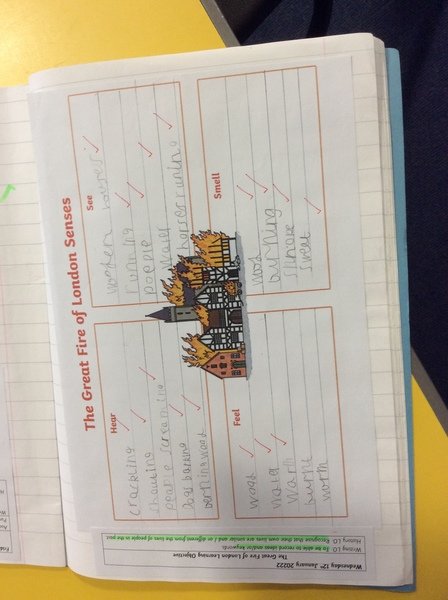 Wednesday 12th January 20222
The Great Fire of London Learning Objective
Writing LO: To be able to record ideas and/or keywords
History LO: Recognise that their own lives are similar and / or different from the lives of people in the past
The Great Fire of London Senses
Hear
crackling
shouting
people screaming
Dogs barking
berning wood
See
houses
running
people
Feel
wood
hard
Smell
wood
burning
smoke